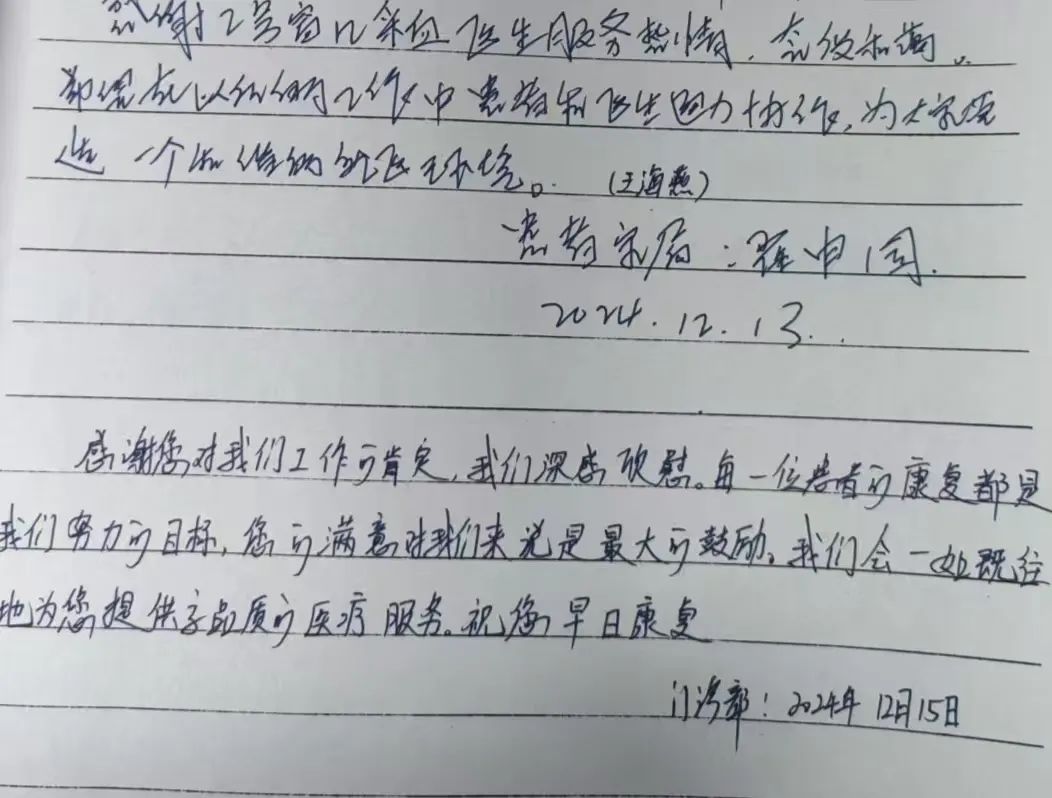 感谢2号窗口采血医生服务热情,态度和蔼。
希望在以后的工作中患者和医生通力协作,为大家营
造一个和谐的就医环境。(王海燕)
患者家属:翟申国.
2024.12.13.
感谢您对我们工作的肯定,我们深感欣慰。每一位患者的康复都是
我们努力的目标,您的满意对我们来说是最大的鼓励。我们会一如既往
地为您提供高品质的医疗服务。祝您早日康复
门诊部:2024年12月15日